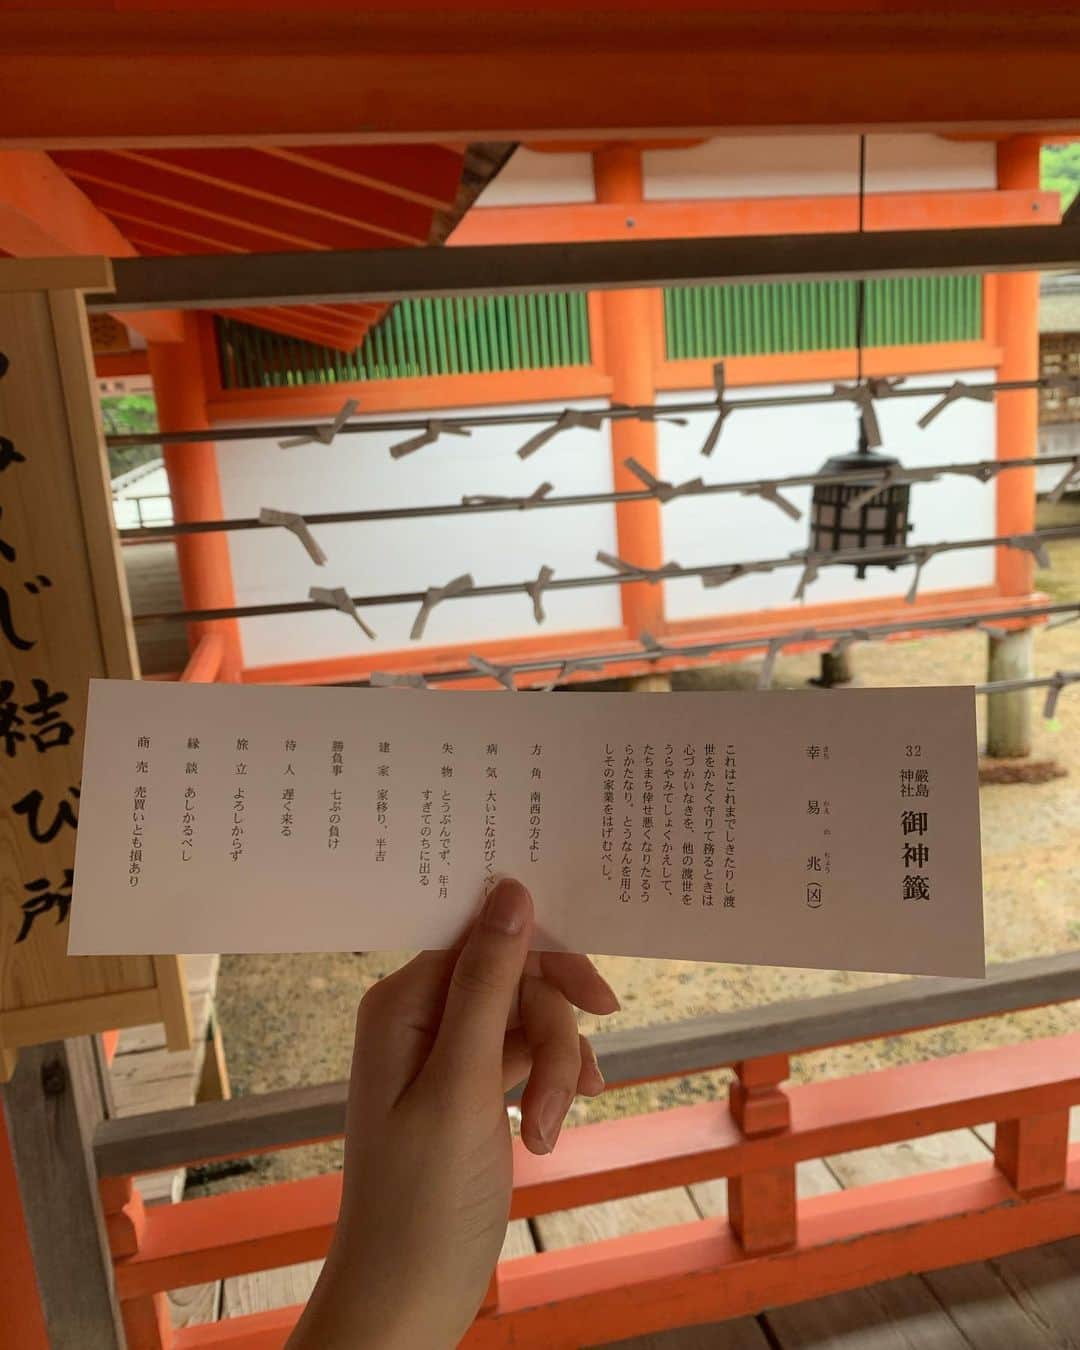 32 厳島神社 御神籤
幸易兆(凶)
さち かえの ちょう
これはこれまでしきたりし渡
世をかたく守りて務るときは
心づかいなきを、他の渡世を
うらやみてしょくかえして、
たちまち倖せ悪くなりたるう
らかたなり。とうなんを用心
しその家業をはげむべし。
方角 南西の方よし
病気 大いにながびくべし
失物 とうぶんでず、年月
すぎてのちに出る
建家 家移り、半吉
勝負事 七ぶの負け
待人 遅く来る
旅立 よろしからず
縁談 あしかるべし
商売 売買いとも損あり
みくじ結び所